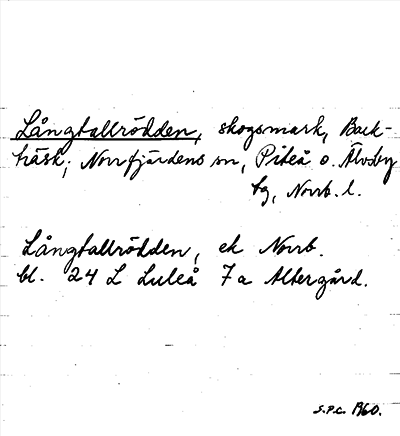 Långtallrödden, skogsmark, Back-
träsk, Norrfjärdens sn, Piteå o. Älvsby
tg, Norrb. l.
Långtallrödden, ek Norrb.
bl. 24 L Luleå 7a Altergård.
S.P.C. 1960.